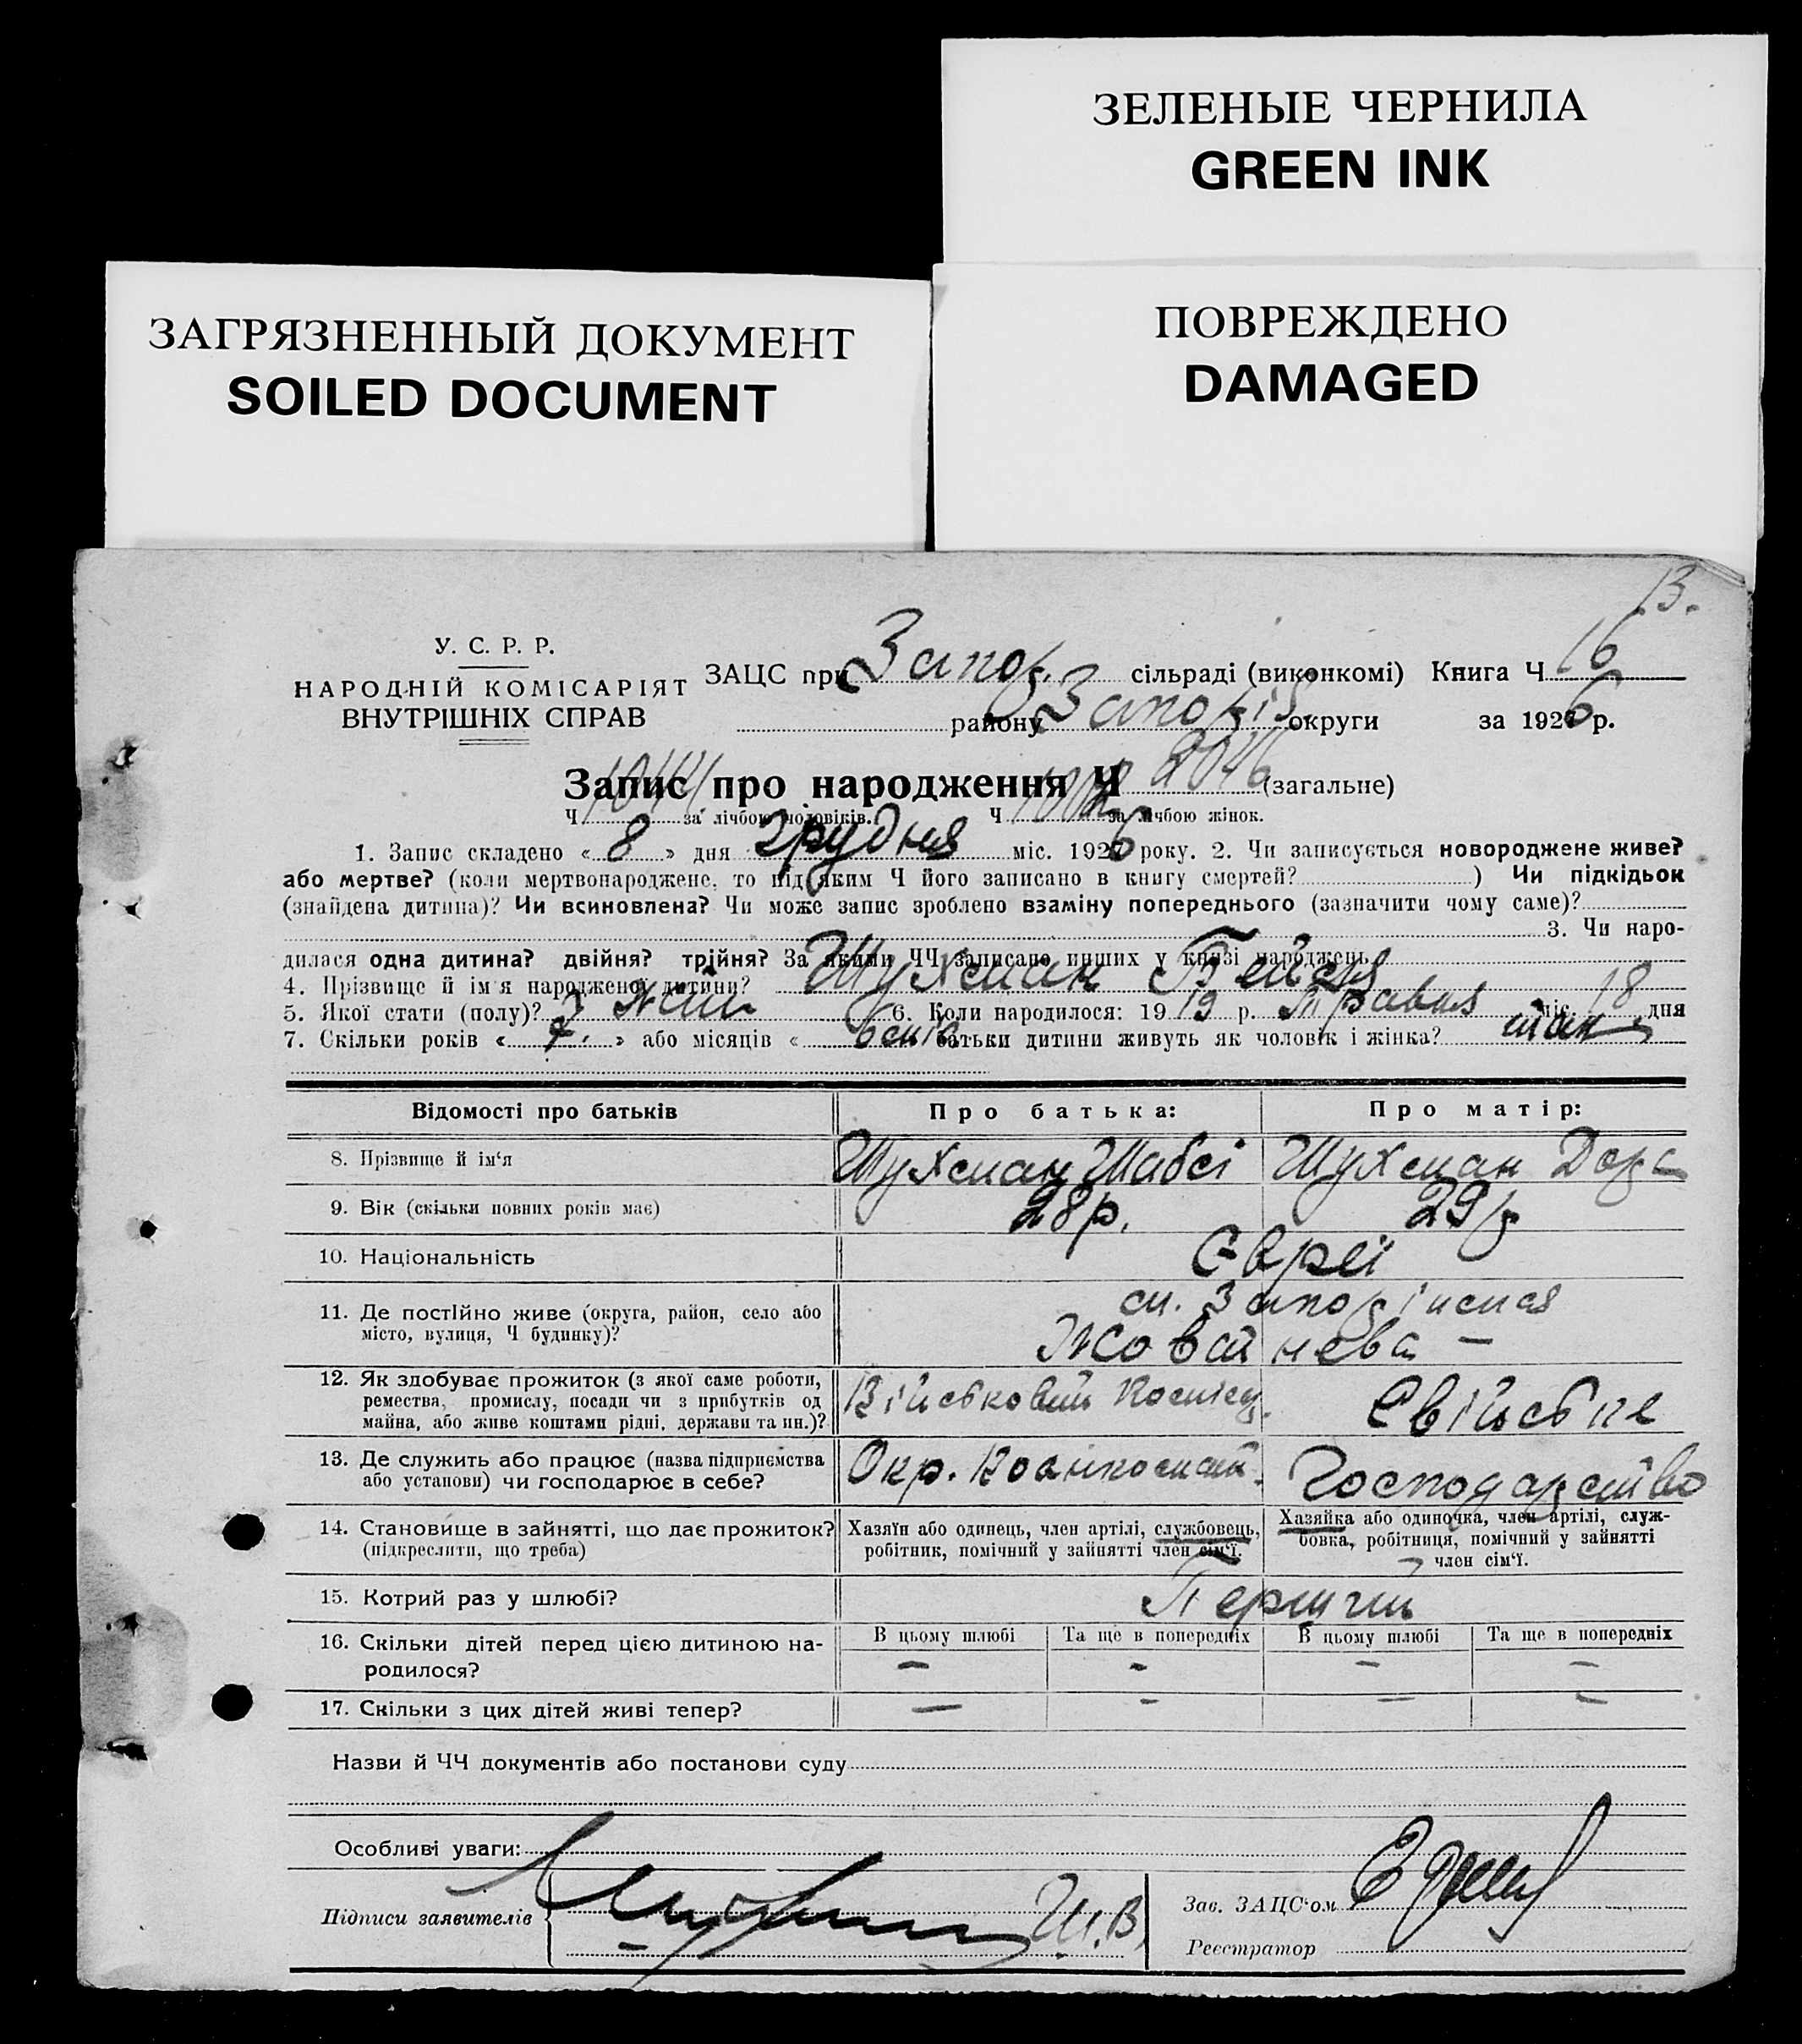 ЗЕЛЕНЫЕ ЧЕРНИЛА
GREEN INK
ЗАГРЯЗНЕННЫЙ ДОКУМЕНТ
SOILED DOCUMENT
ПОВРЕЖДЕНО
DAMAGED
13.
У. С. Р. Р.
НАРОДНІЙ КОМІСАРІЯТ
ВНУТРІШНІХ СПРАВ
ЗАЦС при Запор. сільраді (виконкомі) Книга Ч 16
району Запоріз округи за 1926 р.
Запис про народження Ч 2046 (загальне)
Ч 1044 за лічбою чоловіків. Ч 1002 за лічбою жінок.
1. Запис складено « 8 » дня Грудня міс. 1926 року. 2. Чи записується новороджене живе?
або мертве? (коли мертвонароджене, то під яким Ч його записано в книгу смертей? ) Чи підкідьок
(знайдена дитина)? Чи всиновлена? Чи може запис зроблено взаміну попереднього (зазначити чому саме)?
3. Чи наро-
дилася одна дитина? двійня? трійня? За якими ЧЧ записано инших у книзі народжень
4. Прізвище й ім'я народженої дитини? Шухман Бейля
5. Якої стати (полу)? Жін 6. Коли народилося: 1919 р. Травня міс. 18 дня
7. Скільки років « 7. » або місяців « 6 батьки дитини живуть як чоловік і жінка? так
Відомості про батьків
Про батька:
Про матір:
8. Прізвище й ім'я
Шухман Шабсі
Шухман Дора
9. Вік (скільки повних років має)
28 р.
29 р
10. Національність
Євреї
11. Де постійно живе (округа, район, село або
місто, вулиця, Ч будинку)?
м. Запоріжжя
Жовтнева —
12. Як здобуває прожиток (з якої саме роботи,
ремества, промислу, посади чи з прибутків од
майна, або живе коштами рідні, держави та ин.)?
Військовий
Євійстне
13. Де служить або працює (назва підприємства
або установи) чи господарює в себе?
Окр. Воєнкомат.
Господарство
14. Становище в зайнятті, що дає прожиток?
(підкреслити, що треба)
Хазяїн або одинець, член артілі, службовець,
робітник, помічний у зайнятті член сім'ї.
Хазяйка або одиночка, член артілі, служ-
бовка, робітниця, помічний у зайнятті
член сім'ї.
15. Котрий раз у шлюбі?
Перший
16. Скільки дітей перед цією дитиною на-
родилося?
В цьому шлюбі
Та ще в попередніх
В цьому шлюбі
Та ще в попередніх
— — — —
17. Скільки з цих дітей живі тепер?
— — — —
Назви й ЧЧ документів або постанови суду
Особливі уваги:
Підписи заявителів
Ш.В.
Зав. ЗАЦС'ом
Реєстратор